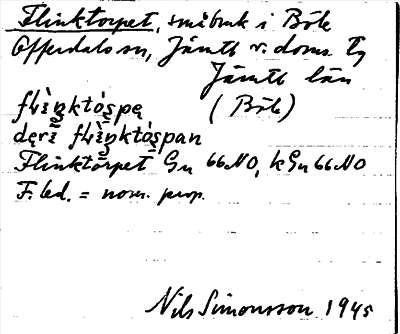 Flinktorpet, småbruk i Böle
Offerdals sn, Jämtl. v. doms. tg
Jämtl. län
flìŋktó̱spę (Böle)
dęri flìŋktó̱span
Flinktorpet Gu 66 NO, kGu 66 NO
F. led. = nom. prop.
Nils Simonsson 1945